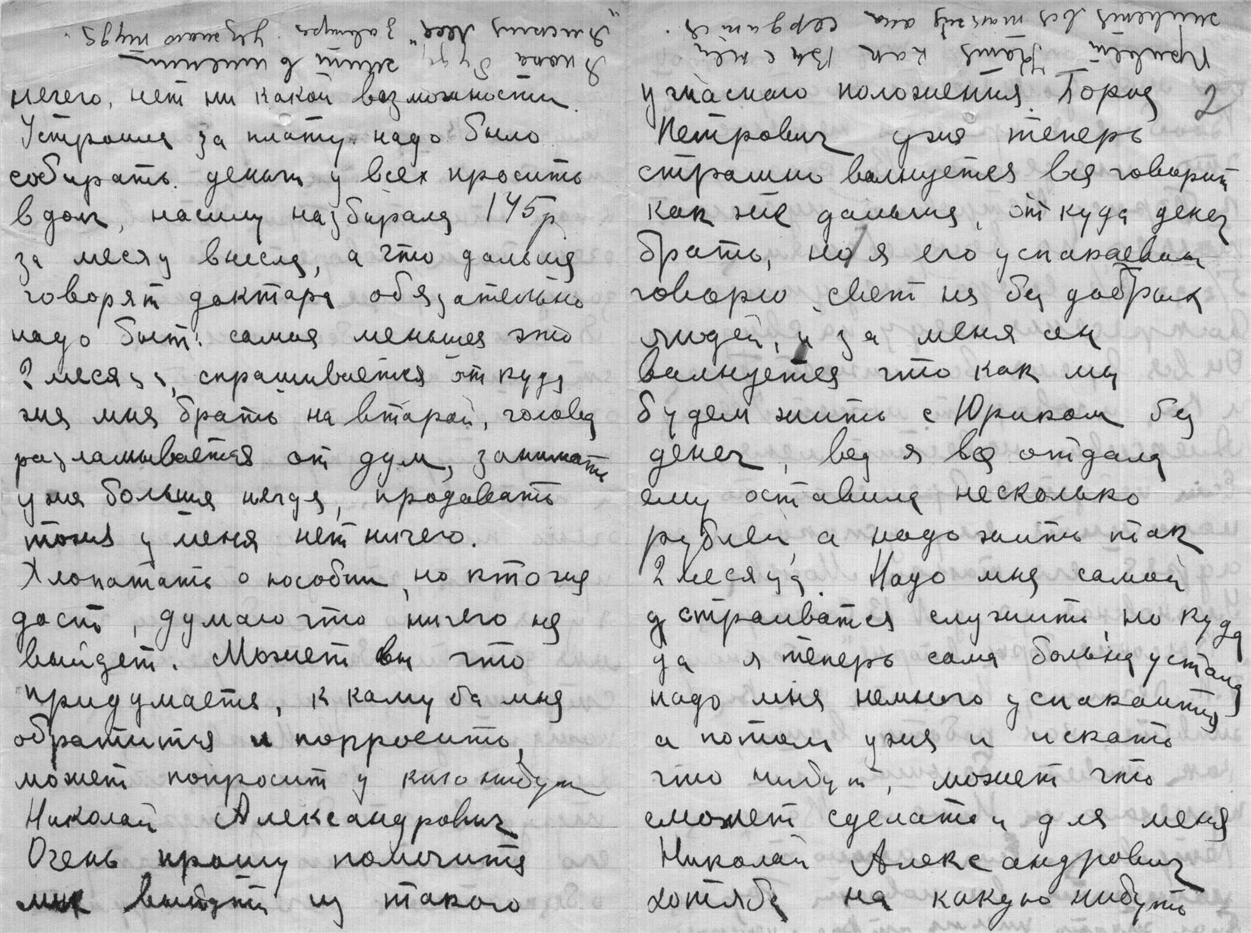 нечего, нет ни какой возможности.
Устроила за плату. надо было
собирать. деньги у всех просить
в долг, насилу назбирала 145р
за месяц внесла, а что дальше
говорят доктара обязательно
надо быть. самая меньшея это
2 месяца, спрашивается откуда
же мня брать на второй, голова
разламывается от дум, занимать
уже больше негде, продавать
тоже у меня нет ничего.
Хлопатать о пособии, но кто же
даст, думаю что ничего не
выйдет. Может вы что
придумаете, к каму бы мня
обратится и попросить,
может попросит у кого нибудь
Николай Александрович
Очень прошу помочите
мне выйдти из такого
ужаснаго положения. Борис 2
Петрович уже теперь
страшно валнуется все говорит
как же дальше, откуда денег
брать, но я его успакаеваю
говорю свет не без добрых
людей, и за меня он
валнуется что как мы
будем жить с Юриком без
денег, вед я все отдала
ему оставила несколько
рублей, а надо жить так
2 месяца. Надо мня самой
устраиватся служить, но куда
да я теперь сама больна устала
надо мня немного успакаится
а потом уже и искать
что нибут, может что
сможет сделать и для меня
Николай Александрович
хотябы на какую нибуть
Я пока буду жить в имении
"Ясский Лес" завтра уезжаю туда.
Привет Кате как Вы с ней
живете все также она сердится.